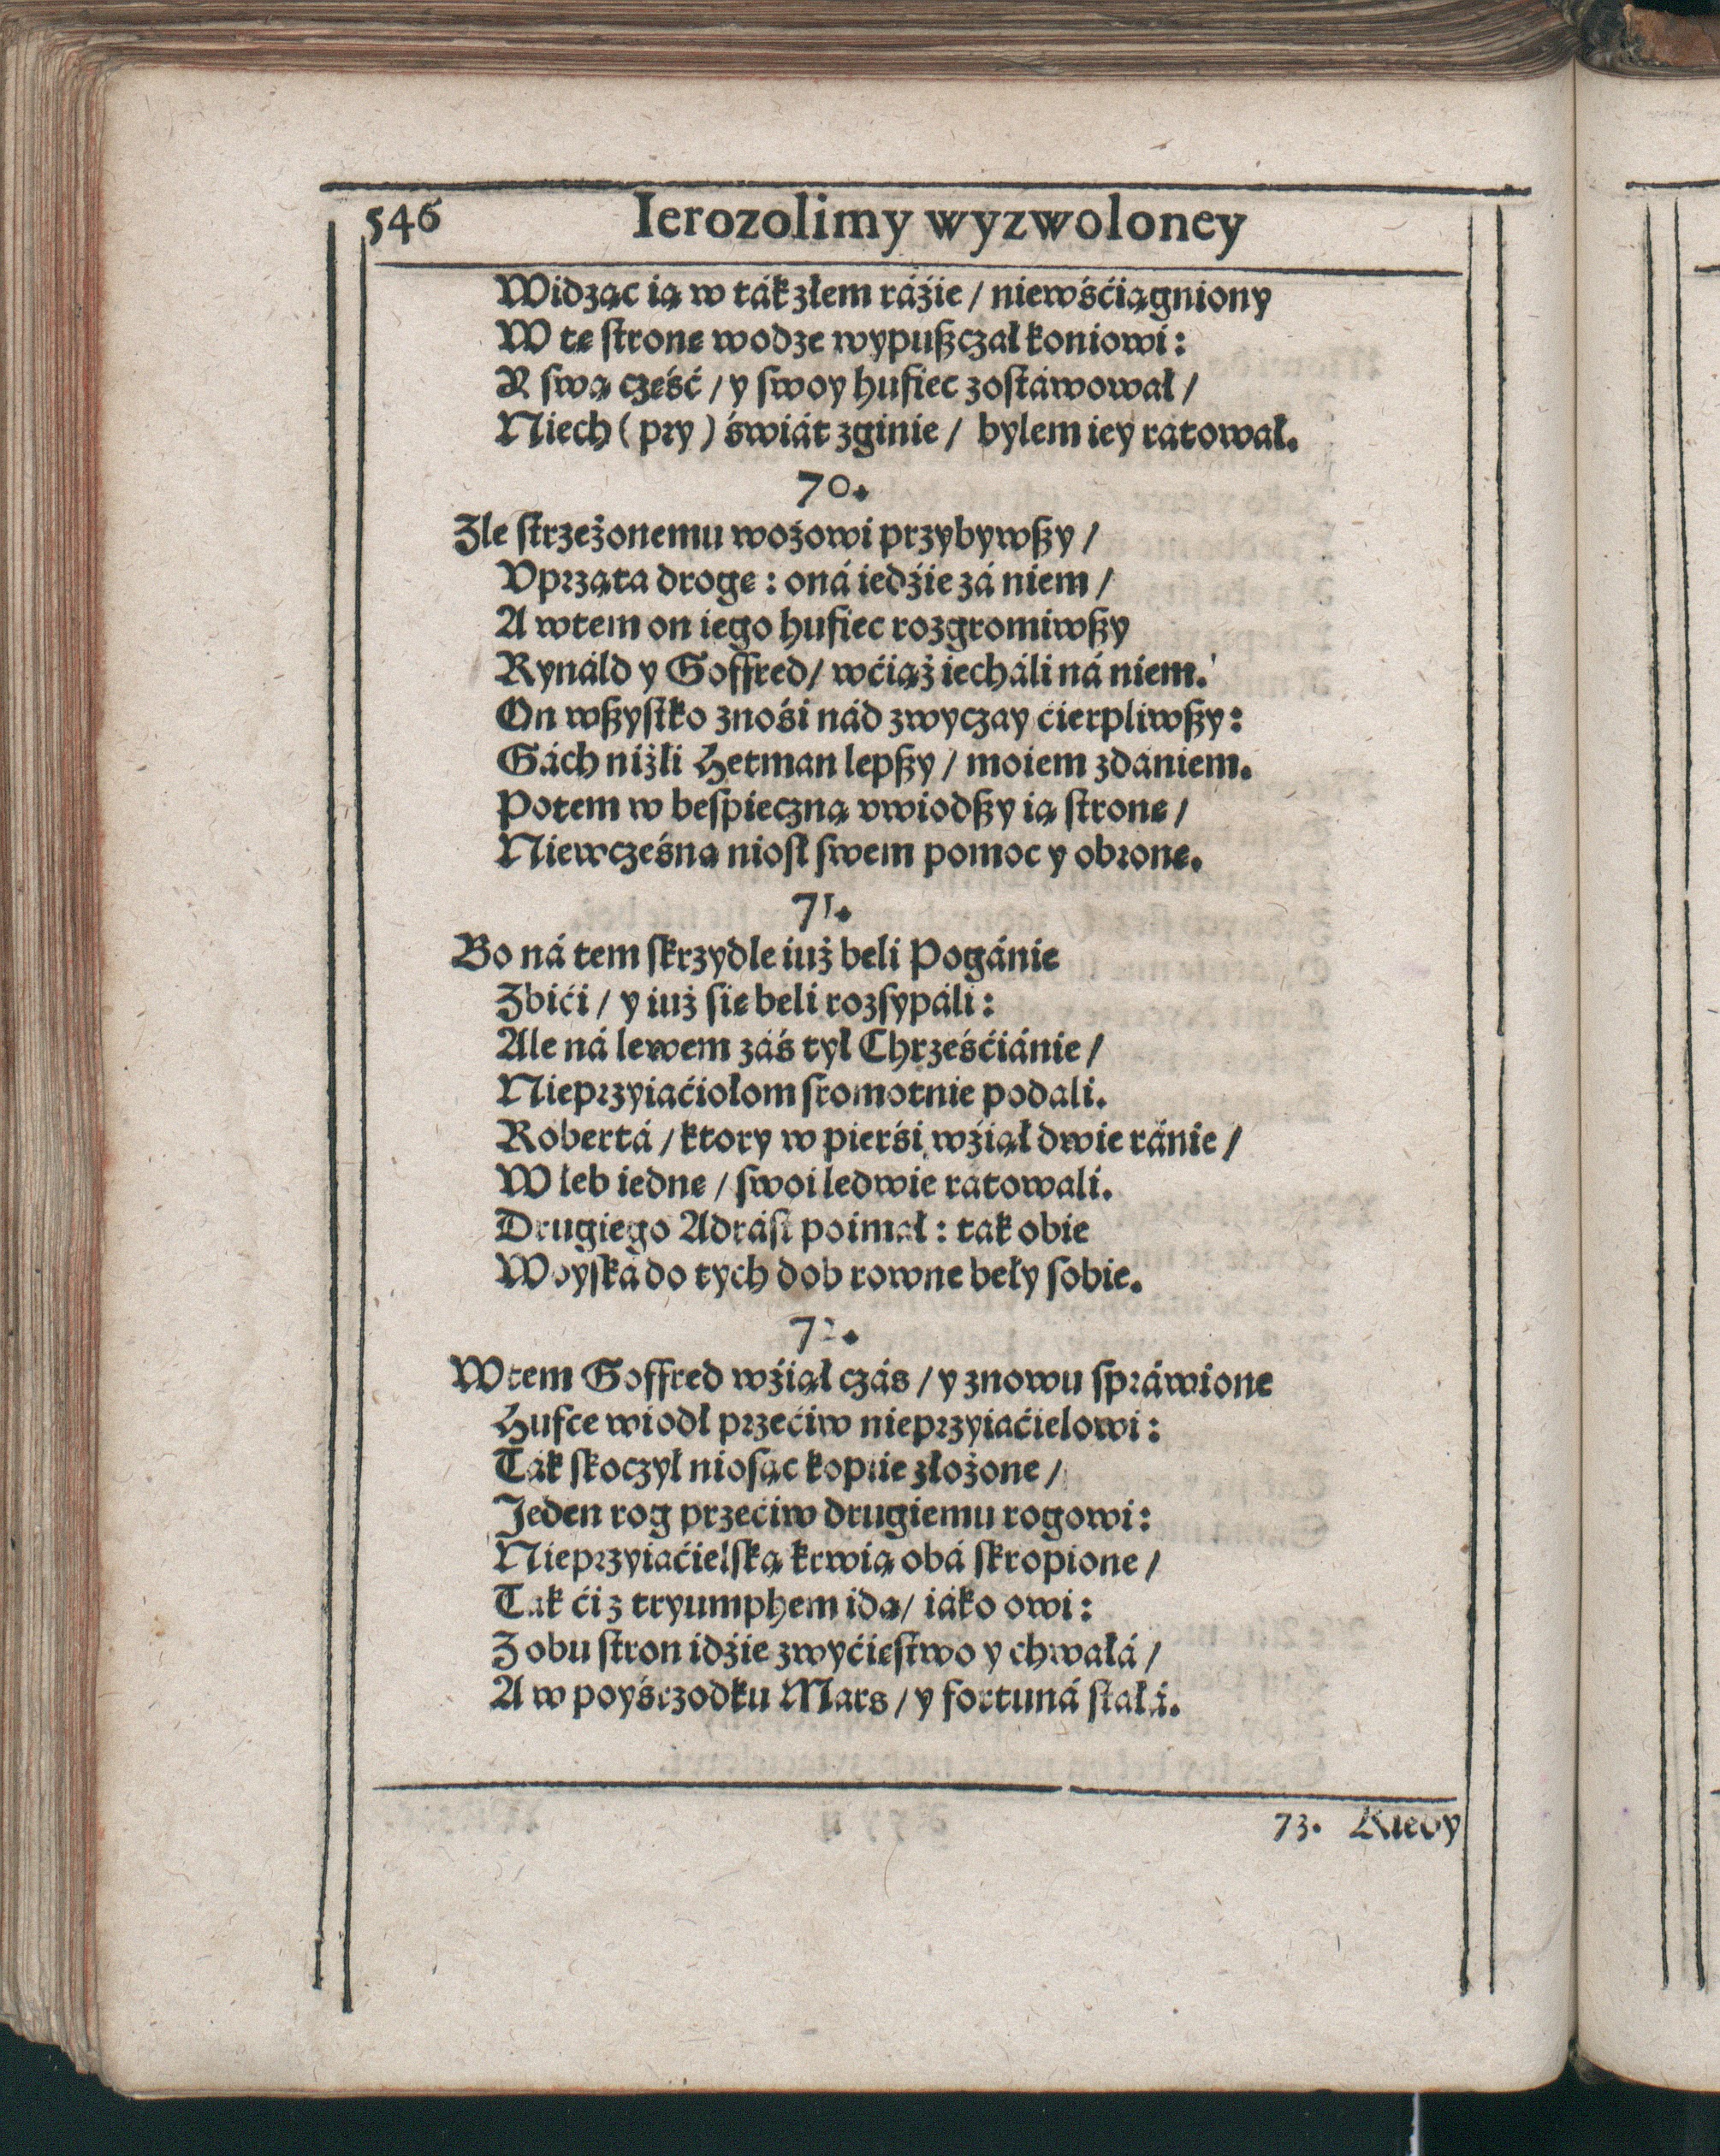 546 Ierozolimy wyzwoloney
Widząc ią w ták złem ráźie / niewśćiągniony
W tę stronę wodze wypußczał koniowi:
Y swą cześć / y swoy hufiec zostáwował /
Niech (pry) świát zginie / bylem iey ratował.
70.
Zle strzeżonemu wozowi przybywßy /
Vprząta drogę: oná iedźie zá niem /
A wtem on iego hufiec rozgromiwßy
Rynáld y Goffred / wćiąż iecháli ná niem.
On wßystko znośi nád zwyczay ćierpliwßy:
Gách niżli Hetman lepßy / moiem zdániem.
Potem w bespieczną vwiodßy ią stronę /
Niewcześną niosł swem pomoc y obronę.
71.
Bo ná tem skrzydle iuż beli Pogánie
Zbići / y iuż się beli rozsypáli:
Ale ná lewem záś tył Chrześćiánie /
Nieprzyiaćiołom sromotnie podali.
Robertá / ktory w pierśi wźiął dwie ránie /
W łeb iednę / swoi ledwie ratowali.
Drugiego Adrást poimał: tak obie
Woyská do tych dob rowne beły sobie.
72.
Wtem Goffred wźiął czás / y znowu spráwione
Hufce wiodł przećiw nieprzyiaćielowi:
Ták skoczył niosąc kopiie złożone /
Jeden rog przećiw drugiemu rogowi:
Nieprzyiaćielską krwią obá skropione /
Tak ći z tryumphem idą / iáko owi:
Z obu stron idźie zwyćięstwo y chwałá /
A w pośrzodku Mars / y fortuná stałá.
73. Kiedy